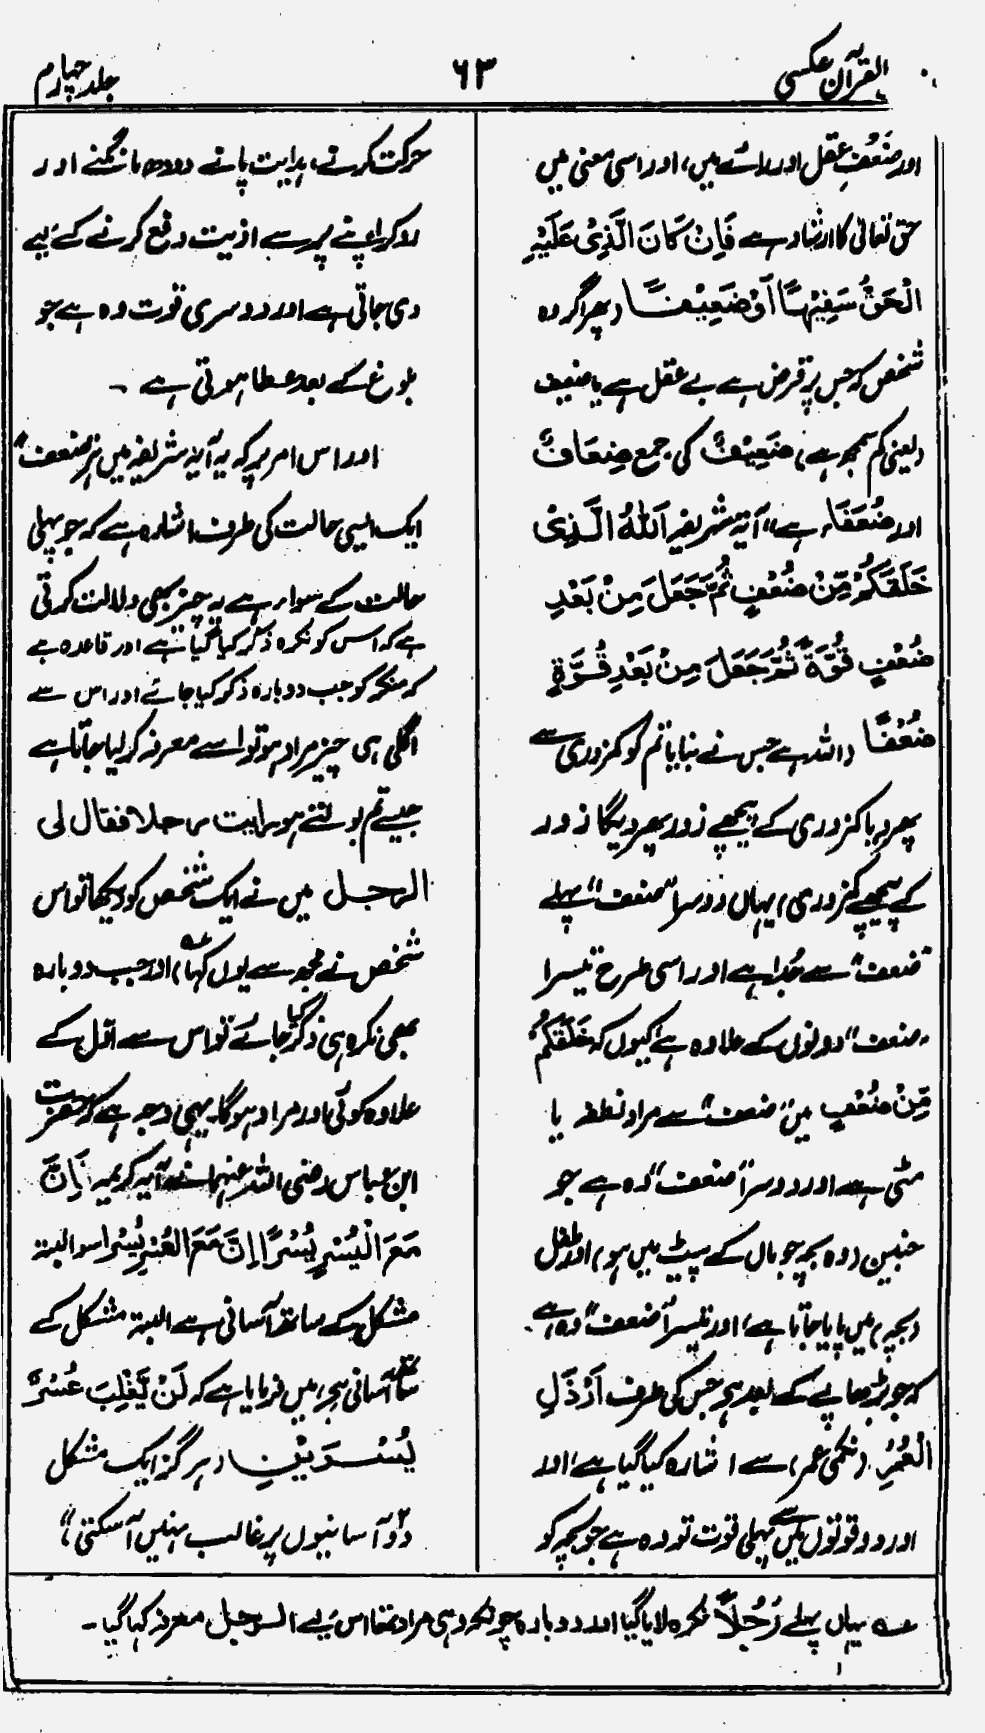 القرآن عکسی
٦٣
جلد چہارم
اور ضَعْفِ عقل اور رائے میں، اور اسی معنی میں
حق تعالیٰ کا ارشاد ہے فَاِنْ كَانَ الَّذِیْ عَلَیْهِ
الْحَقُّ سَفِیْهًا اَوْ ضَعِیْفًا (پھر اگر وہ
شخص کہ جس پر قرض ہے بے عقل ہے یا ضعیف
(یعنی کم سمجھ ہے) ضَعِیْفٌ کی جمع ضِعَافٌ
اور ضُعَفَاء ہے" آیۃ شریفہ اَللّٰهُ الَّذِیْ
خَلَقَكُمْ مِّنْ ضُعْفٍ ثُمَّ جَعَلَ مِنْ بَعْدِ
ضُعْفٍ قُوَّةً ثُمَّ جَعَلَ مِنْ بَعْدِ قُوَّةٍ
ضُعْفًا (اللہ ہے جس نے بنایا تم کو کمزوری سے
پھر دیا کمزوری کے پیچھے زور پھر دیگا زور
کے پیچھے کمزوری) یہاں دوسرا "ضعف" پہلے
"ضعف" سے جُدا ہے اور اسی طرح تیسرا
"ضعف" دونوں کے علاوہ ہے کیوں کہ خَلَقَكُمْ
مِّنْ ضُعْفٍ میں "ضعف" سے مراد نطفہ یا
مٹی ہے اور دوسرا "ضعف" وہ ہے جو
جنین (وہ بچہ جو ماں کے پیٹ میں ہو) اور طفل
(بچہ) میں پایا جاتا ہے، اور تیسرا "ضعف" وہ ہے
کہ جو بڑھاپے کے بعد ہے جس کی طرف اَرْذَلِ
الْعُمُرِ (نکمی عمر) سے اشارہ کیا گیا ہے اور
اور دو قوتوں میں سے پہلی قوت تو وہ ہے جو بچہ کو
حرکت کرتے، ہدایت پانے دودھ مانگنے اور
لا کر اپنے پر سے اذیت دفع کرنے کے لیے
دی جاتی ہے اور دوسری قوت وہ ہے جو
بلوغ کے بعد عطا ہوتی ہے۔
اور اس امر پر کہ یہ آیۃ شریفہ میں ہر "ضعف"
ایک ایسی حالت کی طرف اشارہ ہے کہ جو پہلی
حالت کے سوا ہے یہ چیز بھی دلالت کرتی
ہے کہ اس کو نکرہ ذکر کیا گیا ہے اور قاعدہ ہے
کہ منکر کو جب دوبارہ ذکر کیا جائے اور اس سے
اگلی ہی چیز مراد ہو تو اسے معرفہ کر لیا جاتا ہے
جیسے تم بولتے ہو رایت رجلا فقال لی
الرجل میں نے ایک شخص کو دیکھا تو اس
شخص نے مجھ سے یوں کہا) عہ اور جب دوبارہ
بھی نکرہ ہی ذکر کیا جائے تو اس سے اول کے
علاوہ کوئی اور مراد ہو گا۔ یہی وجہ ہے کہ حضرت
ابن عباس رضی اللہ عنہما نے آیہ کریمہ اِنَّ
مَعَ الْعُسْرِ یُسْرًا اِنَّ مَعَ الْعُسْرِ یُسْرًا سو البتہ
مشکل کے ساتھ آسانی ہے البتہ مشکل کے
ساتھ آسانی ہے) میں فرمایا ہے کہ لَنْ یَّغْلِبَ عُسْرٌ
یُسْرَیْنِ (ہرگز ایک مشکل
دو آسانیوں پر غالب نہیں آ سکتی)"
عہ یہاں پہلے رَجُلاً نکرہ لایا گیا اور دوبارہ چونکہ وہی مراد تھا اس لیے الرجل معرفہ کہا گیا۔